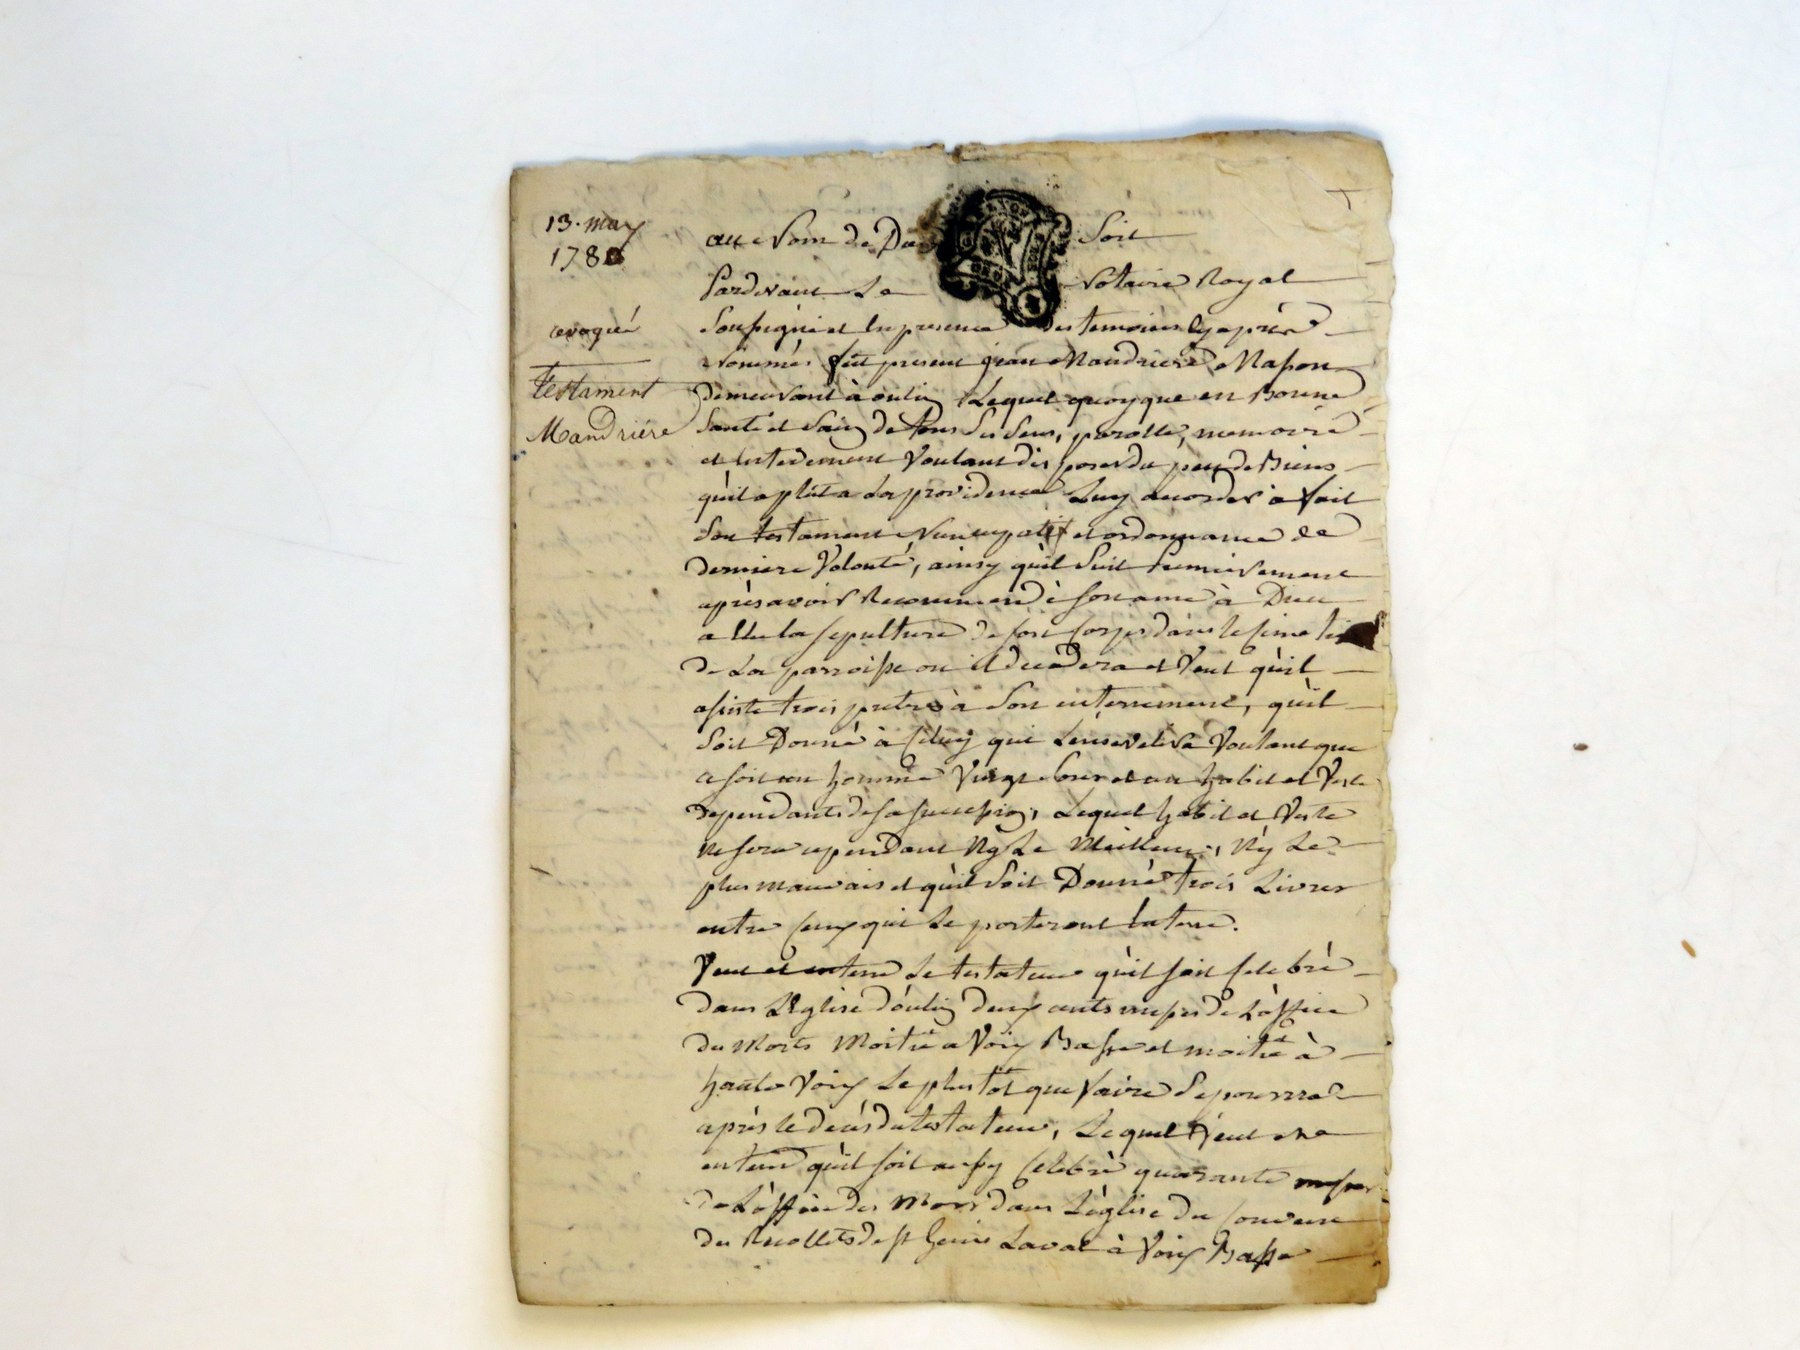 13. may
1780
revoqué
Testament
Mandriére
au Nom de Dieu Soit
Pardevant Le Notaire Royal
Soussigné et En presence des temoins Cy après
Nommés fut present jean Mandriere Masson
demeurant à oulin Lequel quoyque en Bonne
Santé et Sain de tous Ses Sens, parolle, memoire
et Entendement Voulant disposer du peu de Biens
qu'il a plut a La providence Luy accorder a fait
Son testament Nuncupatif et ordonnance de
derniere Volonté, ainsy qu'il Suit Premierement
après avoir Recommendé son ame à Dieu
a Elu la sepulture de son Corps dans le simetiere
de La parroisse ou il decedera et Veut qu'il
assiste trois pretres à Son enterrement, qu'il
Soit Donné à Celuy qui L'ensevelira Voulant que
ce soit un homme Vingt Sous et un habit et Veste
dependants de sa succession, Lequel habit et Veste
ne sera cependant Ny Le Meilleur, Ny Le
plus mauvais et qu'il Soit Donné trois Livres
entre Ceux qui Le porteront En terre.
Veut et entend Le testateur qu'il soit Celebré
dans L'Eglise d'oulin deux cents messes de L'office
des Morts Moitié a Voix Basse et moitié à
haute Voix Le plus tôt que faire Se pourra
après le decès du testateur, Lequel Veut et
entend qu'il soit aussy Celebré quarante messes
de L'office des Morts dans L'église du Couvent
des Recollets de st Genis Laval à Voix Basse